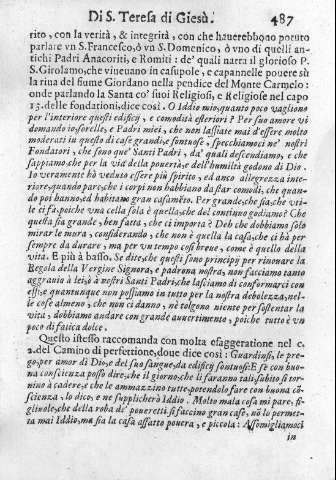 Di S. Teresa di Giesù. 487
rito, con la verità, & integrità, con che hauerebbono potuto
parlare vn S. Francesco, ò vn S. Domenico, ò vno di quelli an-
tichi Padri Anacoriti, e Romiti: de' quali narra il glorioso P.
S. Girolamo, che viueuano in casupole, e capannelle pouere sù
la rina del fiume Giordano nella pendice del Monte Carmelo:
onde parlando la Santa co' suoi Religiosi, e Religiose nel capo
13. delle fondationi, dice così. O Iddio mio, quanto poco vagliono
per l'interiore questi edificij, e comodità esteriori? Per suo amore vi
domando ò sorelle, e Padri miei, che non lasciate mai d'essere molto
moderati in questo di case grandi, e sontuose, specchiamoci ne' nostri
Fondatori, che sono que' Santi Padri, da' quali descendiamo, e che
sappiamo, che per la via della pouertà, e dell'humiltà godono di Dio.
Io veramente hò veduto essere più spirito, ed anco allegrezza inte-
riore, quando pare, che i corpi non habbiano da star comodi, che quan-
do poi hanno, ed habitano gran casamẽto. Per grande, che sia, che vti-
le ci fà, poiche vna cella sola è quella, che del continuo godiamo? Che
questa sia grande, ben fatta, che ci importa? Deh che dobbiamo solo
mirar le mora, considerando, che non è quella la casa, che ci hà per
sempre da durare, ma per vn tempo così breue, come è quello della
vita. E più à basso. Se dite, che questi sono principij per rinouare la
Regola della Vergine Signora, e padrona nostra, non facciamo tanto
aggrauio à lei, ò à nostri Santi Padri, che lasciamo di conformarci con
essi, e quantunque non possiamo in tutto per la nostra debolezza, nel-
le cose almeno, che non ci danno, nè tolgono niente per sostentar la
vita, dobbiamo andare con grande auuertimento, poiche tutto è vn
poco di fatica dolce.
Questo istesso raccomanda con molta esaggeratione nel c.
2. del Camino di perfettione, doue dice così: Guardinsi, le pre-
go, per amor di Dio, e del suo sangue, da edificij sontuosi: E sè con buo-
na conscienza posso dire, che il giorno, che li faranno tali, subito si tor-
nino à cadere, e che le ammazzino tutte, potendolo fare con buona cõ-
scienza, lo dico, e ne supplicherò Iddio. Molto mala cosa mi pare, fi-
gliuole, che della roba de' poueretti si faccino gran case, nõ lo permet-
ta mai Iddio, ma sia la casa affatto pouera, e piccola: Assomigliamoci
in